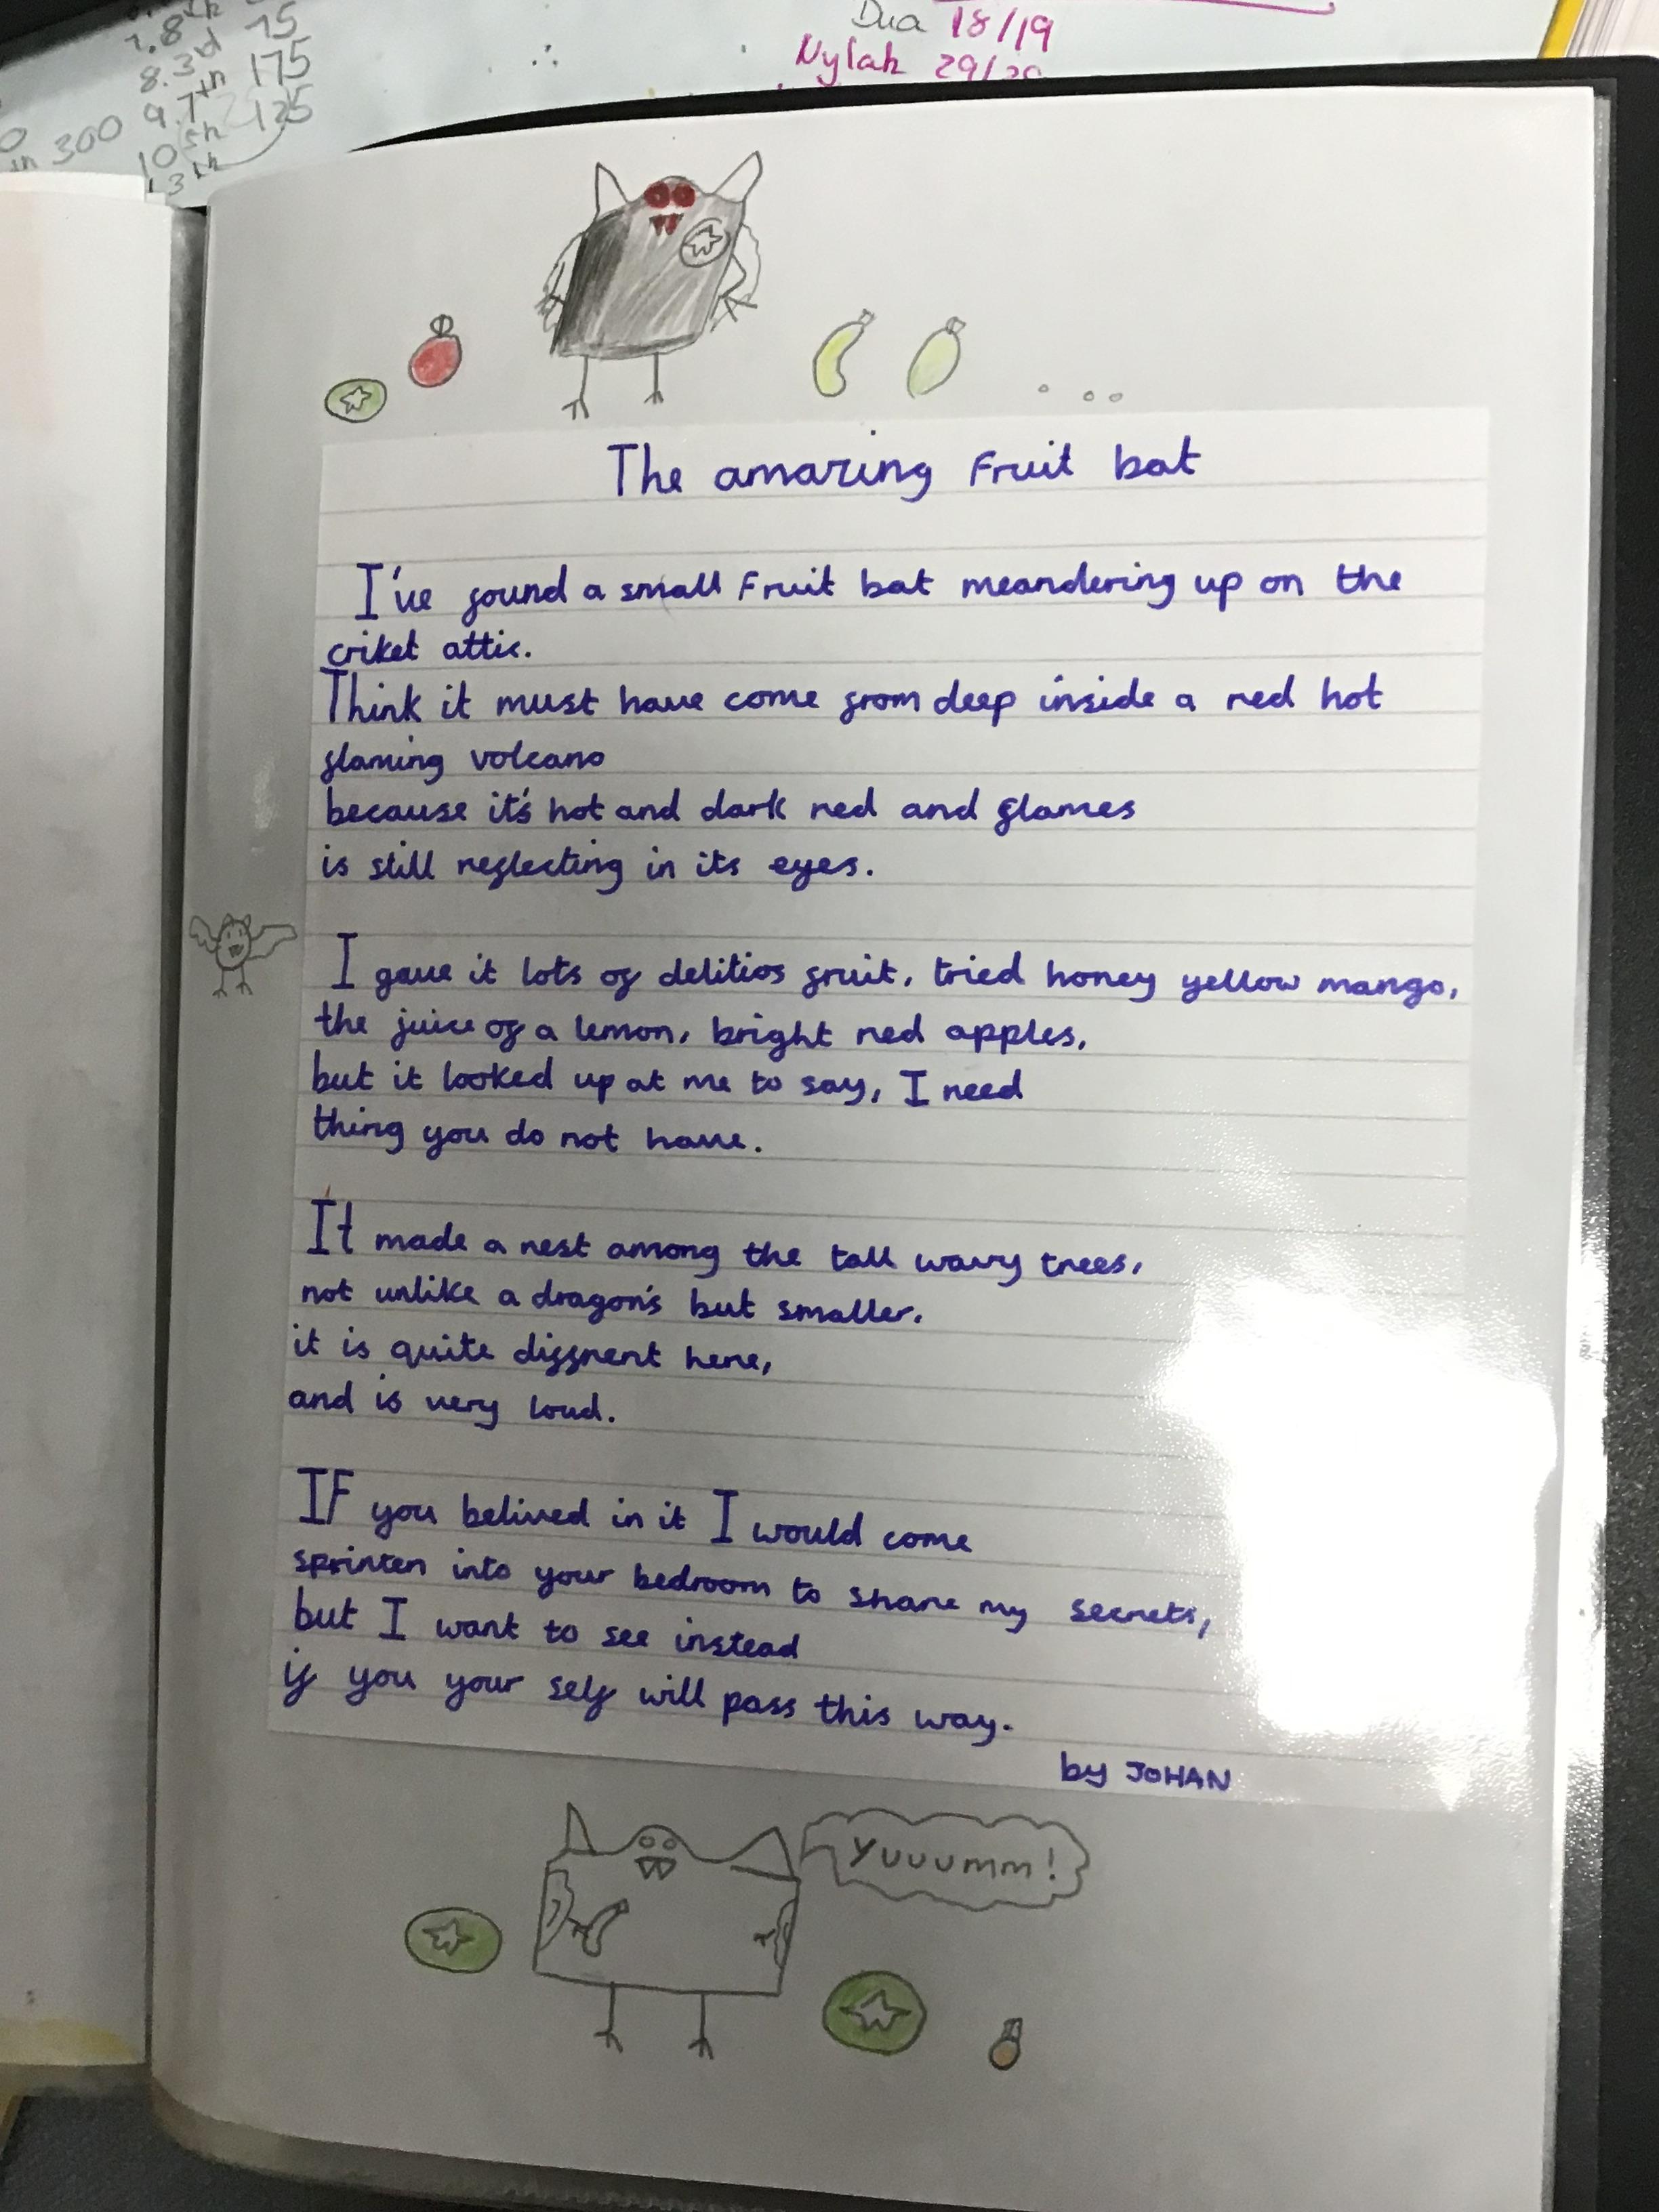 7.8th 75
8.3rd 175
9.7th 125
300 10 5th
13th
Dua 18/19
Nylah 29/30
The amazing Fruit bat
I've found a small Fruit bat meandering up on the
criket attic.
Think it must have come from deep inside a red hot
flaming volcano
because it's hot and dark red and flames
is still reflecting in its eyes.
I gave it lots of delitios fruit, tried honey yellow mango,
the juice of a lemon, bright red apples,
but it looked up at me to say, I need
thing you do not have.
It made a nest among the tall wavy trees,
not unlike a dragon's but smaller.
it is quite diffrent here,
and is very loud.
IF you belived in it I would come
sprinten into your bedroom to share my secrets,
but I want to see instead
if you your self will pass this way.
by JOHAN
Yuuumm!